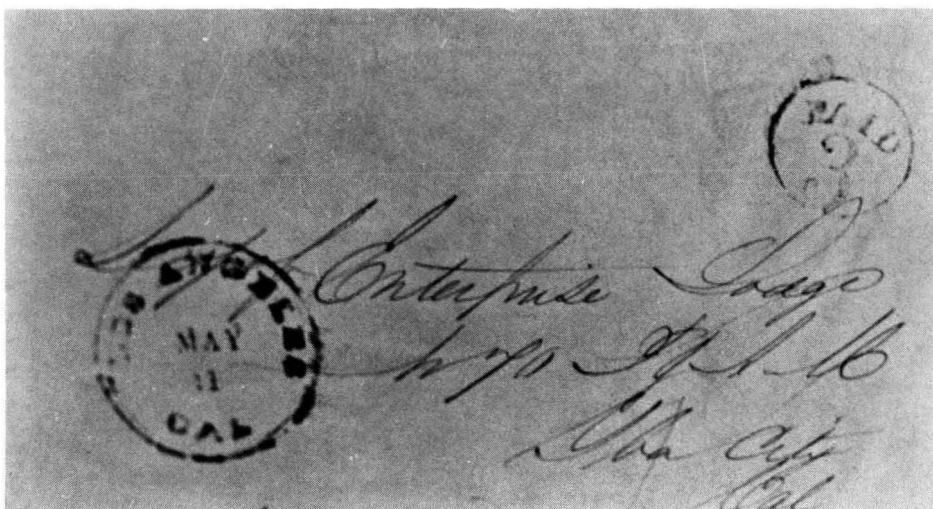 PAID
3
Enterprise Lodge
No 70 F & A M
Yuba City
Cal
LOS ANGELES
MAY
11
CAL